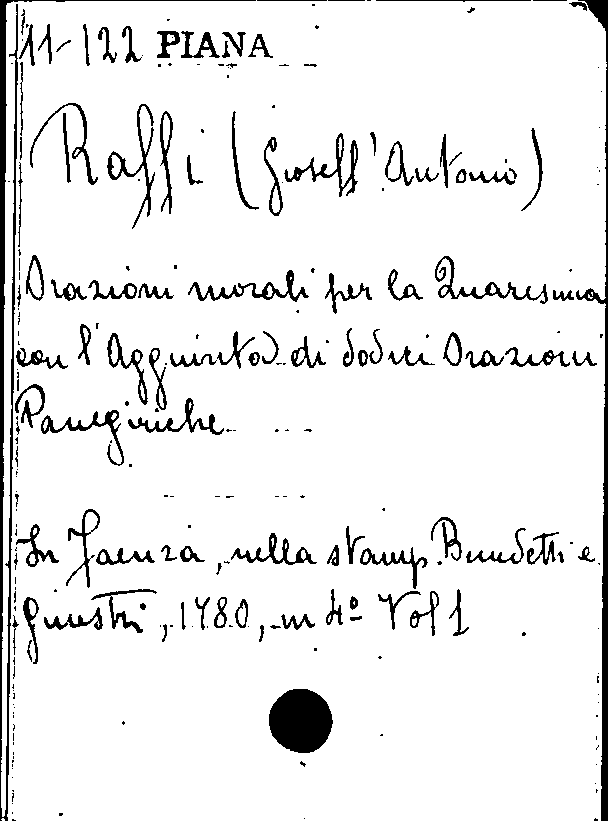 11-122 PIANA
Raffi (Gioseff'Antonio)
Orazioni morali per la Quaresima
con l'Aggiunta di dodici Orazioni
Panegiriche
In Faenza, nella stamp. Benedetti e
Ginestri, 1780, in 4º Vol 1